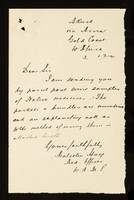 Aburi
via Accra
Gold Coast
W Africa
Dear Sir
I am sending you
by parcel post some samples
of Native medicines. The
packets & bundles are numbered
and an explanatory note as
to the method of using them is
Yours faithfully
Malcolm Hay
Med. Officer
W A M S